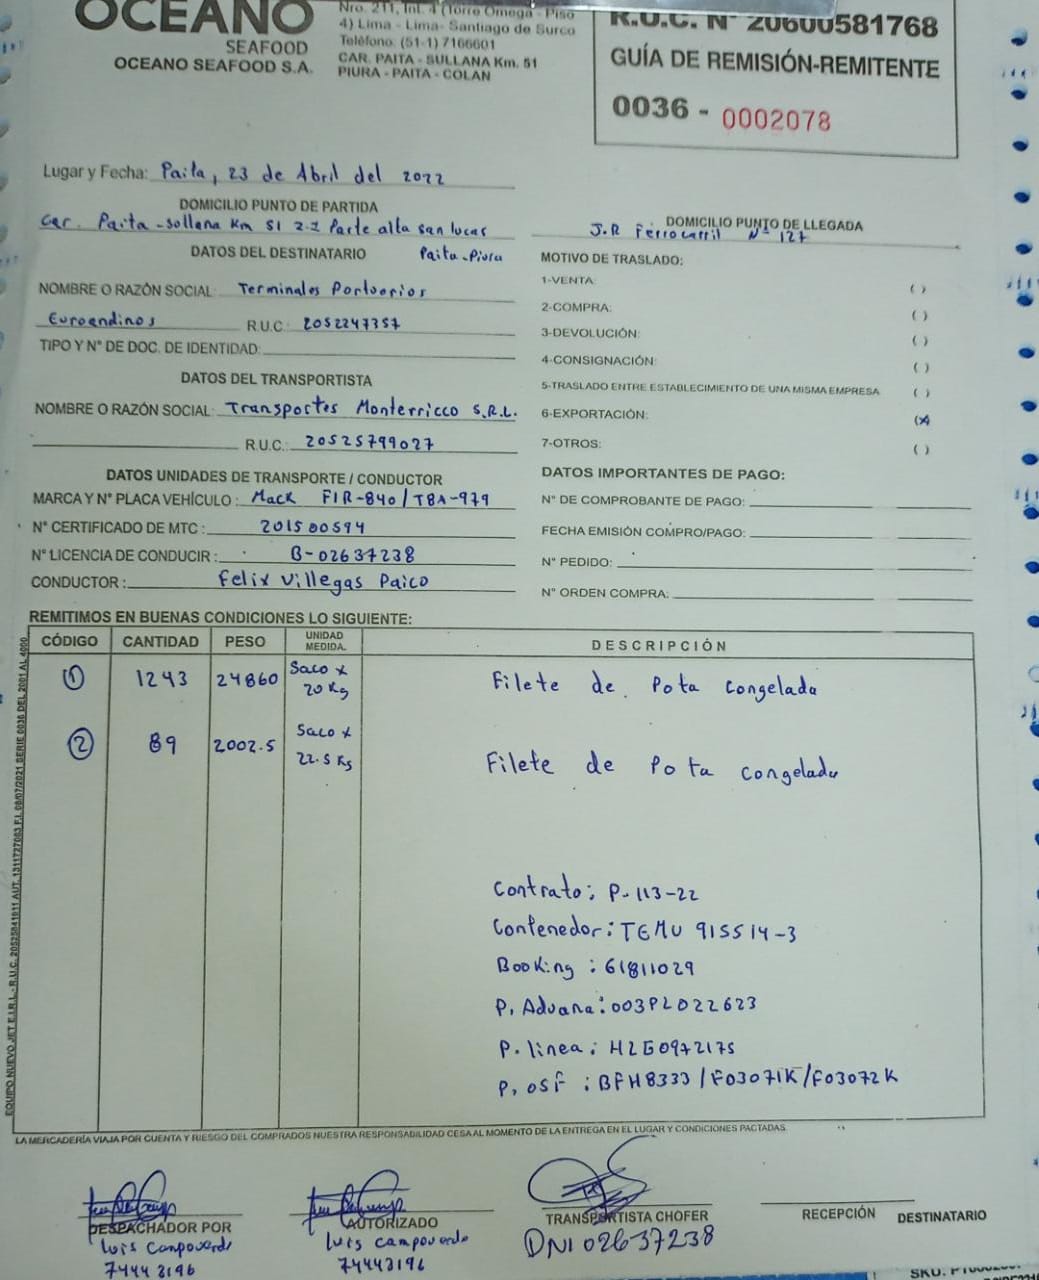 OCEANO
SEAFOOD
OCEANO SEAFOOD S.A.
Nro. 211, Int. 4 (Torre Omega - Piso
4) Lima - Lima- Santiago de Surco
Teléfono: (51-1) 7166601
CAR. PAITA - SULLANA Km. 51
PIURA - PAITA - COLAN
R.U.C. N° 20600581768
GUÍA DE REMISIÓN-REMITENTE
0036 - 0002078
Lugar y Fecha: Paita, 23 de Abril del 2022
DOMICILIO PUNTO DE PARTIDA
Car. Paita -sollana Km 51 2-2 Parte alta san lucas
Paita-Piura
DOMICILIO PUNTO DE LLEGADA
J.R Ferrocarril N° 127
DATOS DEL DESTINATARIO
NOMBRE O RAZÓN SOCIAL: Terminales Portuarios
Euroandinos R.U.C: 2052247357
TIPO Y N° DE DOC. DE IDENTIDAD:
DATOS DEL TRANSPORTISTA
NOMBRE O RAZÓN SOCIAL: Transportes Monterricco S.R.L.
R.U.C.: 20525799027
DATOS UNIDADES DE TRANSPORTE / CONDUCTOR
MARCA Y N° PLACA VEHÍCULO : Mack FIR-840/TBA-979
N° CERTIFICADO DE MTC : 201500594
N° LICENCIA DE CONDUCIR : B-02637238
CONDUCTOR : Felix Villegas Paico
MOTIVO DE TRASLADO:
1-VENTA: ( )
2-COMPRA: ( )
3-DEVOLUCIÓN: ( )
4-CONSIGNACIÓN: ( )
5-TRASLADO ENTRE ESTABLECIMIENTO DE UNA MISMA EMPRESA ( )
6-EXPORTACIÓN: (x)
7-OTROS: ( )
DATOS IMPORTANTES DE PAGO:
N° DE COMPROBANTE DE PAGO:
FECHA EMISIÓN COMPRO/PAGO:
N° PEDIDO:
N° ORDEN COMPRA:
REMITIMOS EN BUENAS CONDICIONES LO SIGUIENTE:
CÓDIGO CANTIDAD PESO UNIDAD MEDIDA. DESCRIPCIÓN
1 1243 24860 Saco x 20 Kg Filete de Pota congelada
2 89 2002.5 Saco x 22.5 Kg Filete de Pota congelada
Contrato: P-113-22
Contenedor: TEMU 915514-3
Booking : 61811029
P. Aduana: 003PL022623
P. linea: HLG0972175
P. OSF : BFH8333/F03071K/F03072K
EQUIPO NUEVO JET E.I.R.L.- R.U.C. 20525841011 AUT. 1311727063 F.I. 08/07/2021 SERIE 0036 DEL 2001 AL 4000
LA MERCADERÍA VIAJA POR CUENTA Y RIESGO DEL COMPRADOS NUESTRA RESPONSABILIDAD CESA AL MOMENTO DE LA ENTREGA EN EL LUGAR Y CONDICIONES PACTADAS.
DESPACHADOR POR
Luis Campoverde
74443196
AUTORIZADO
Luis Campoverde
74443196
TRANSPORTISTA CHOFER
DNI 02637238
RECEPCIÓN DESTINATARIO